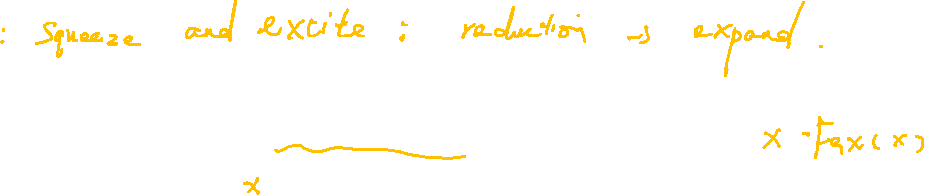 : Squeeze and excite : reduction → expand.
x · Fex(x)
x